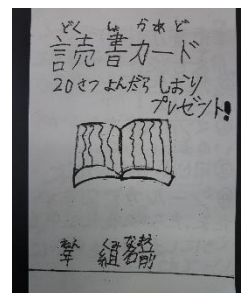 どくしょ かあど
読書カード
20さつよんだら しおり
プレゼント!
ねん くみ なまえ
年 組 名前